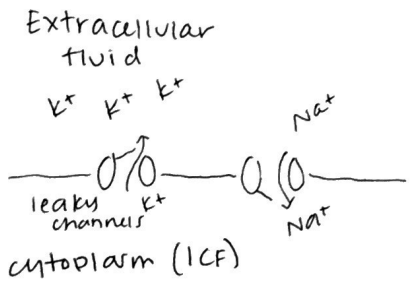 Extracellular
fluid
K+ K+ K+
Na+
leaky
channels
K+
Na+
cytoplasm (ICF)